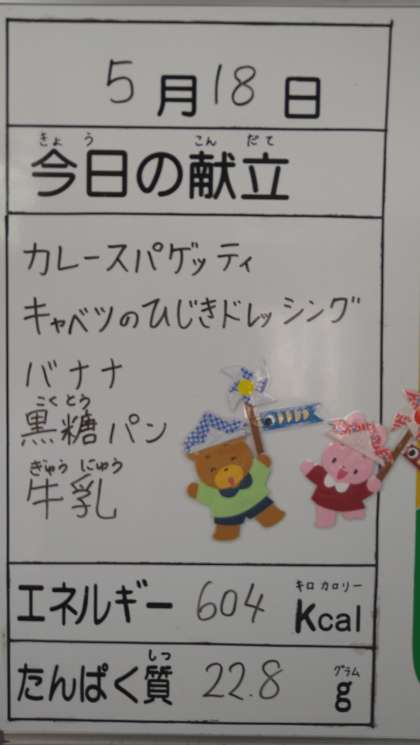 5月18日
きょう こん だて
今日の献立
カレースパゲッティ
キャベツのひじきドレッシング
バナナ
こくとう
黒糖パン
ぎゅう にゅう
牛乳
キロ カロリー
エネルギー 604 Kcal
しつ グラム
たんぱく質 22.8 g